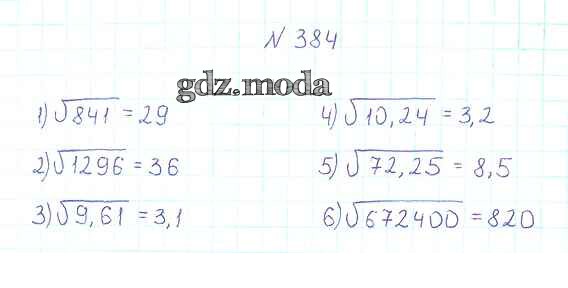 N 384
gdz.moda
1) √841 = 29
2) √1296 = 36
3) √9,61 = 3,1
4) √10,24 = 3,2
5) √72,25 = 8,5
6) √672400 = 820